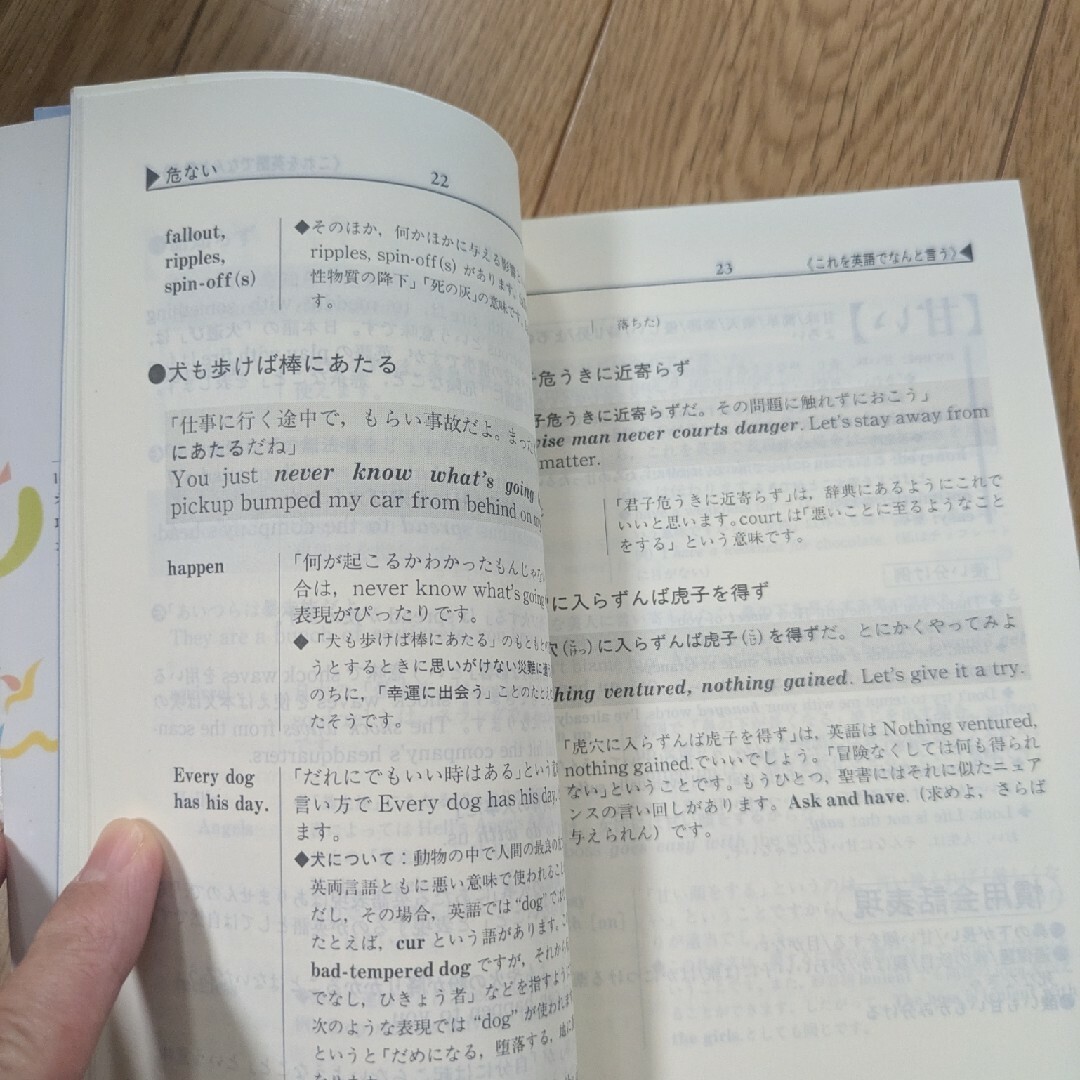 危ない
22
fallout,
ripples,
spin-off(s)
◆そのほか，何かほかに与える影響
ripples, spin-off(s) があります。
性物質の降下」「死の灰」の意味です
す。
●犬も歩けば棒にあたる
「仕事に行く途中で，もらい事故だよ。まった
にあたるだね」
You just never know what's going
pickup bumped my car from behind on my
happen
「何が起こるかわかったもんじゃ
合は，never know what's going
表現がぴったりです。
◆「犬も歩けば棒にあたる」のもともと
うとするときに思いがけない災難に
のちに，「幸運に出会う」ことのたとえ
たそうです。
Every dog
has his day.
「だれにでもいい時はある」という
言い方で Every dog has his day.
ます。
◆犬について：動物の中で人間の最良の
英両言語ともに悪い意味で使われる
だし，その場合，英語では“dog”では
たとえば，cur という語があります。こ
bad-tempered dog ですが，それから
でなし，ひきょう者」などを指すように
次のような表現では “dog” が使われます
というと「だめになる，堕落する，
23
《これを英語でなんと言う》
落ちた)
子危うきに近寄らず
子危うきに近寄らずだ。その問題に触れずにおこう」
wise man never courts danger. Let's stay away from
matter.
「君子危うきに近寄らず」は，辞典にあるようにこれで
いいと思います。court は「悪いことに至るようなこと
をする」という意味です。
に入らずんば虎子を得ず
穴(こけつ)に入らずんば虎子(こじ)を得ずだ。とにかくやってみよ
hing ventured, nothing gained. Let's give it a try.
「虎穴に入らずんば虎子を得ず」は，英語は Nothing ventured,
nothing gained. でいいでしょう。「冒険なくしては何も得られ
ない」ということです。もうひとつ，聖書にはそれに似たニュア
ンスの言い回しがあります。Ask and have. (求めよ，さらば
与えられん) です。